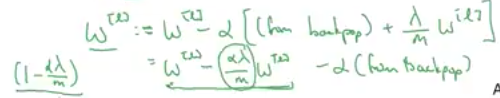 W^{[l]} := W^{[l]} - α [ (from backprop) + λ/m W^{[l]} ]
= W^{[l]} - αλ/m W^{[l]} - α (from backprop)
(1 - αλ/m)
A